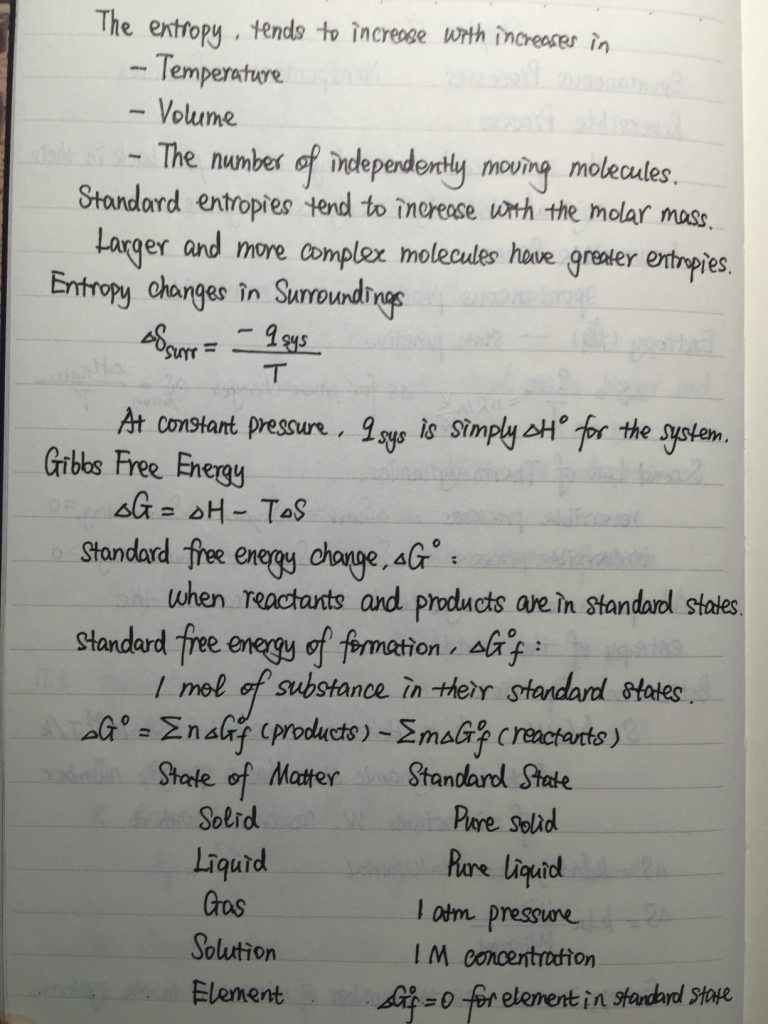 The entropy, tends to increase with increases in
- Temperature
- Volume
- The number of independently moving molecules.
Standard entropies tend to increase with the molar mass.
Larger and more complex molecules have greater entropies.
Entropy changes in Surroundings
ΔSsurr = -qsys / T
At constant pressure, qsys is simply ΔH° for the system.
Gibbs Free Energy
ΔG = ΔH - TΔS
Standard free energy change, ΔG° :
when reactants and products are in standard states.
Standard free energy of formation, ΔG°f :
1 mol of substance in their standard states.
ΔG° = ΣnΔG°f (products) - ΣmΔG°f (reactants)
State of Matter Standard State
Solid Pure solid
Liquid Pure liquid
Gas 1 atm pressure
Solution 1 M concentration
Element ΔG°f = 0 for element in standard state